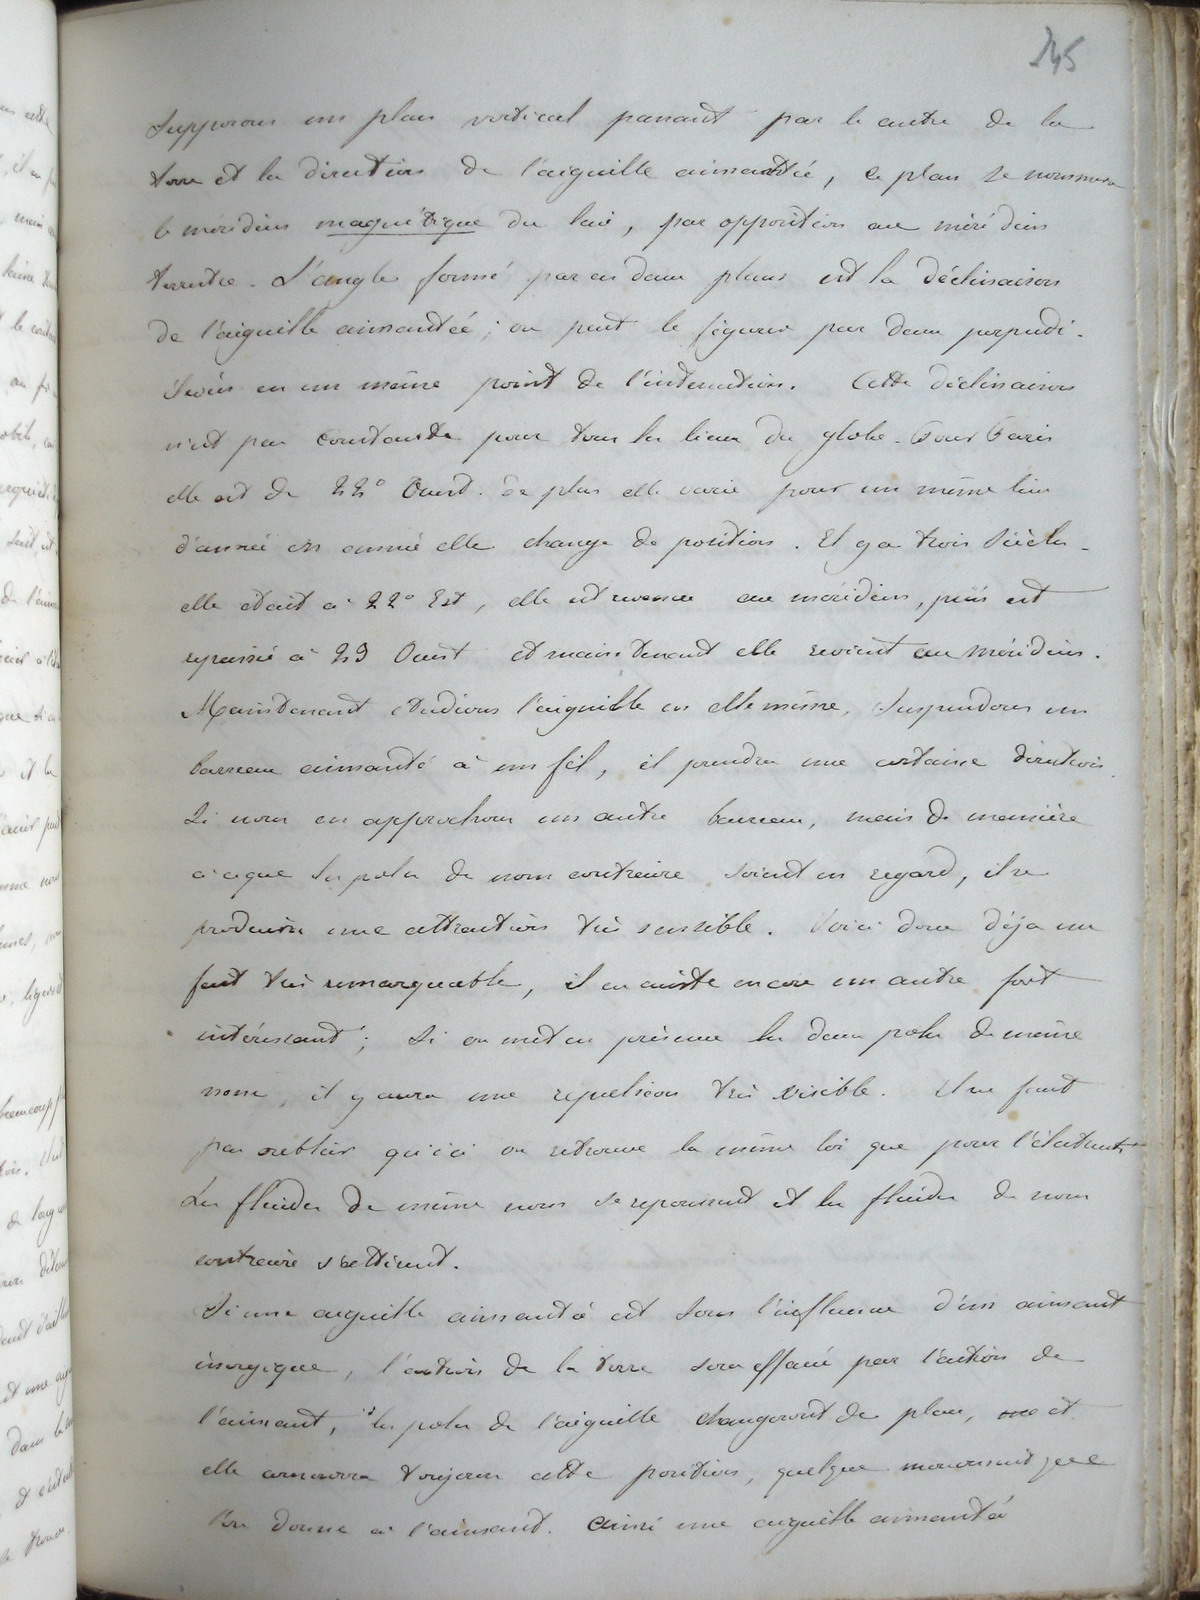 245
Supposons un plan vertical passant par le centre de la
terre et la direction de l'aiguille aimantée, ce plan se nommera
le méridien magnétique du lieu, par opposition au méridien
terrestre. L'angle formé par ces deux plans est la déclinaison
de l'aiguille aimantée ; on peut le figurer par deux perpendi-
en un même point de l'intersection. Cette déclinaison
n'est pas constante pour tous les lieux du globe. Pour Paris
elle est de 22° Ouest. De plus elle varie pour un même lieu
d'année en année elle change de position. Il y a trois siècles
elle était à 22° Est, elle est revenue au méridien, puis est
repassée à 23 Ouest et maintenant elle revient au méridien.
Maintenant étudions l'aiguille en elle même. Suspendons un
barreau aimanté à un fil, il prendra une certaine direction.
Si nous en approchons un autre barreau, mais de manière
à ce que les poles de nom contraire soient en regard, il se
produira une attraction très sensible. Voici donc déja un
fait très remarquable, il en existe encore un autre fort
intéressant ; Si on met en présence les deux poles de même
nom, il y aura une repulsion très visible. Il ne faut
pas oublier qu'ici on retrouve la même loi que pour l'
Les fluides de même nom se repoussent et les fluides de nom
contraire s'attirent.
Si une aiguille aimantée est sous l'influence d'un aimant
énergique, l'action de la terre sera effacée par l'action de
l'aimant, les poles de l'aiguille changeront de place, et
elle conservera toujours cette position, quelque mouvement que
l'on donne à l'aimant. Ainsi une aiguille aimantée